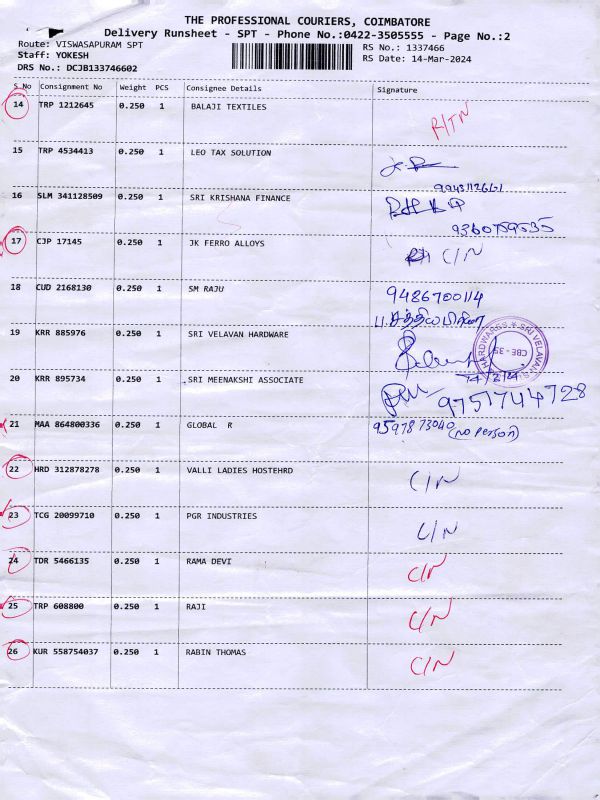 THE PROFESSIONAL COURIERS, COIMBATORE
Delivery Runsheet - SPT - Phone No.:0422-3505555 - Page No.:2
Route: VISWASAPURAM SPT
RS No.: 1337466
Staff: YOKESH
RS Date: 14-Mar-2024
DRS No.: DCJB133746602
S No Consignment No Weight PCS Consignee Details Signature
14 TRP 1212645 0.250 1 BALAJI TEXTILES R/TN
15 TRP 4534413 0.250 1 LEO TAX SOLUTION
16 SLM 341128509 0.250 1 SRI KRISHANA FINANCE
9360759535
17 CJP 17145 0.250 1 JK FERRO ALLOYS C/N
18 CUD 2168130 0.250 1 SM RAJU 9486700114
19 KRR 885976 0.250 1 SRI VELAVAN HARDWARE
CBE-35
20 KRR 895734 0.250 1 SRI MEENAKSHI ASSOCIATE 9751744728
21 MAA 864800336 0.250 1 GLOBAL R 9597873040 (no person)
22 HRD 312878278 0.250 1 VALLI LADIES HOSTEHRD C/N
23 TCG 20099710 0.250 1 PGR INDUSTRIES C/N
24 TDR 5466135 0.250 1 RAMA DEVI C/N
25 TRP 608800 0.250 1 RAJI C/N
26 KUR 558754037 0.250 1 RABIN THOMAS C/N